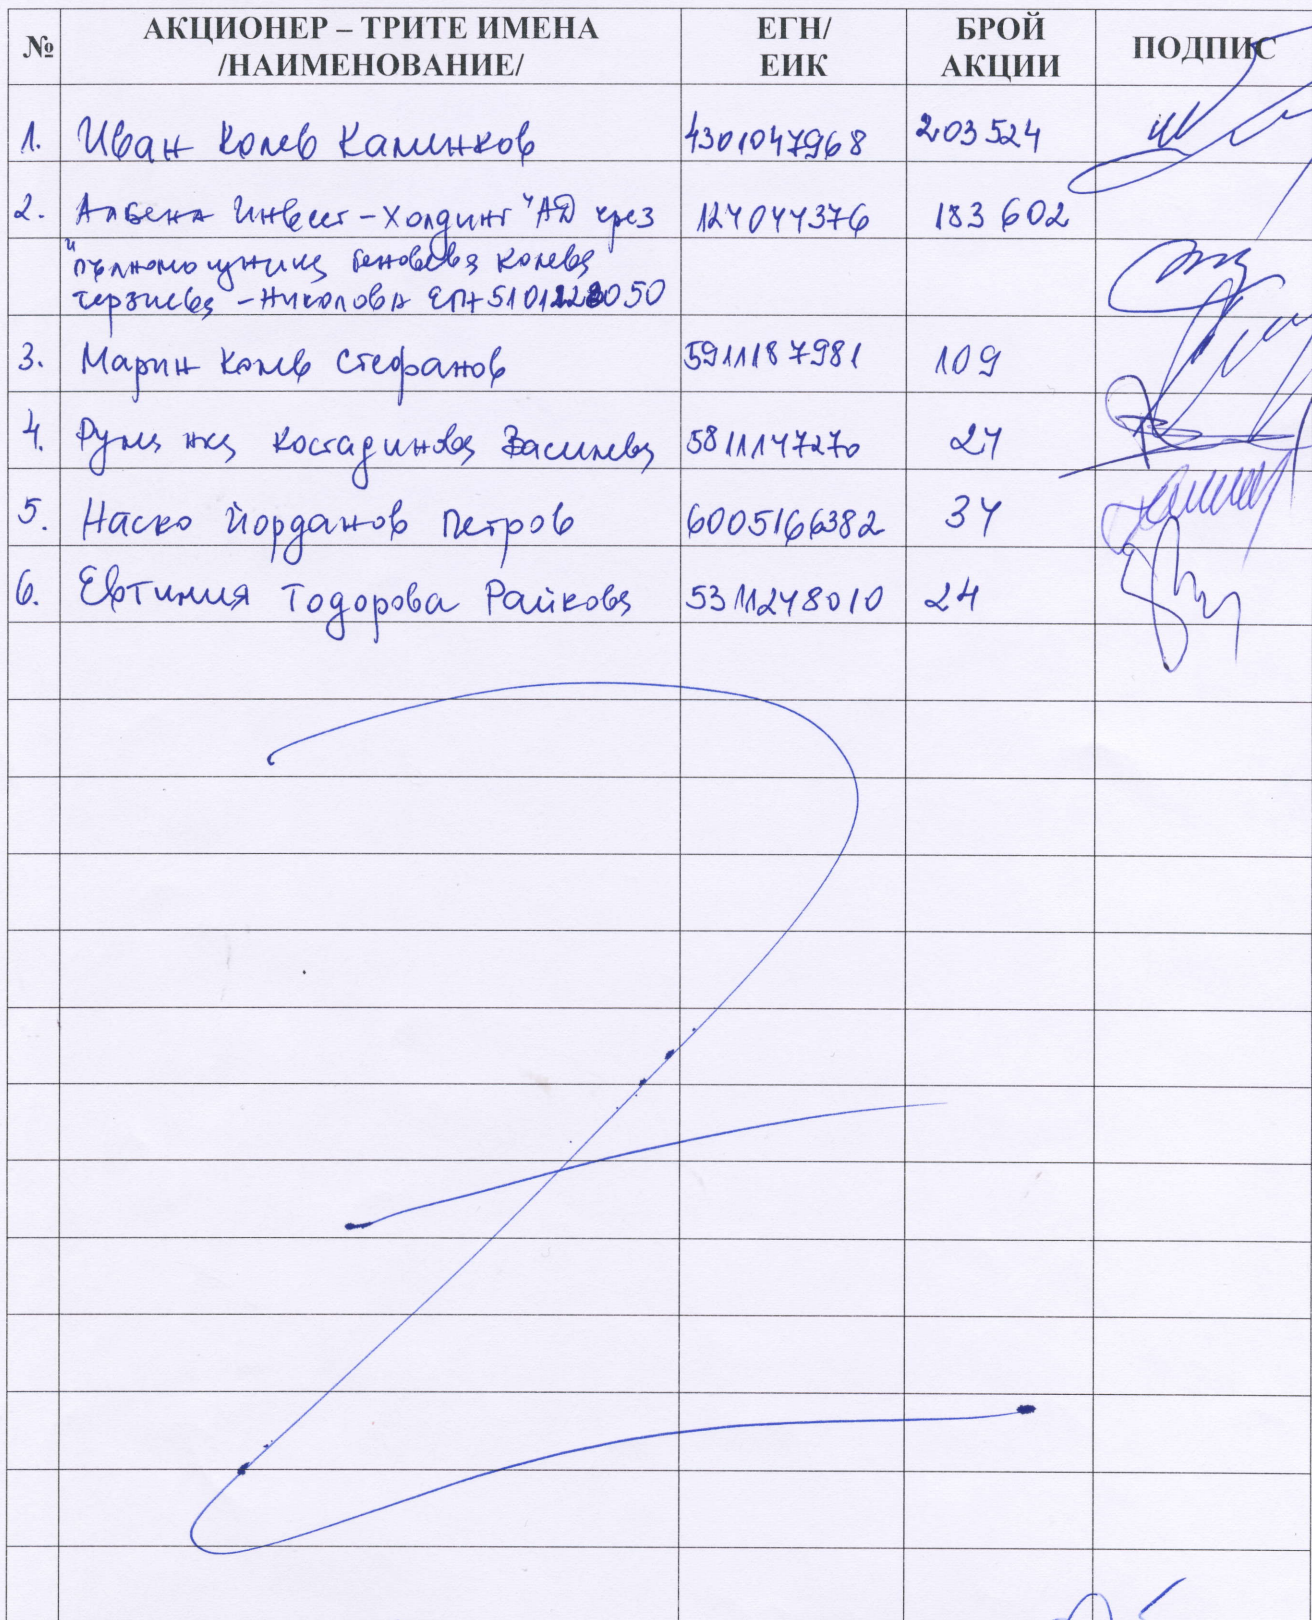 № АКЦИОНЕР – ТРИТЕ ИМЕНА /НАИМЕНОВАНИЕ/ ЕГН/ ЕИК БРОЙ АКЦИИ ПОДПИС
1. Иван Колев Каменков 4301047968 203 524
2. Албена Инвест-Холдинг" АД чрез 124044376 183 602
"пълномощник Геновева Колева
Терзиева - Николова ЕГН 5101228050
3. Марин Колев Стефанов 5911187981 109
4. Румянка Костадинова Василева 5811147270 24
5. Наско Йорданов Петров 6005166382 34
6. Евтимия Тодорова Райкова 5311248010 24